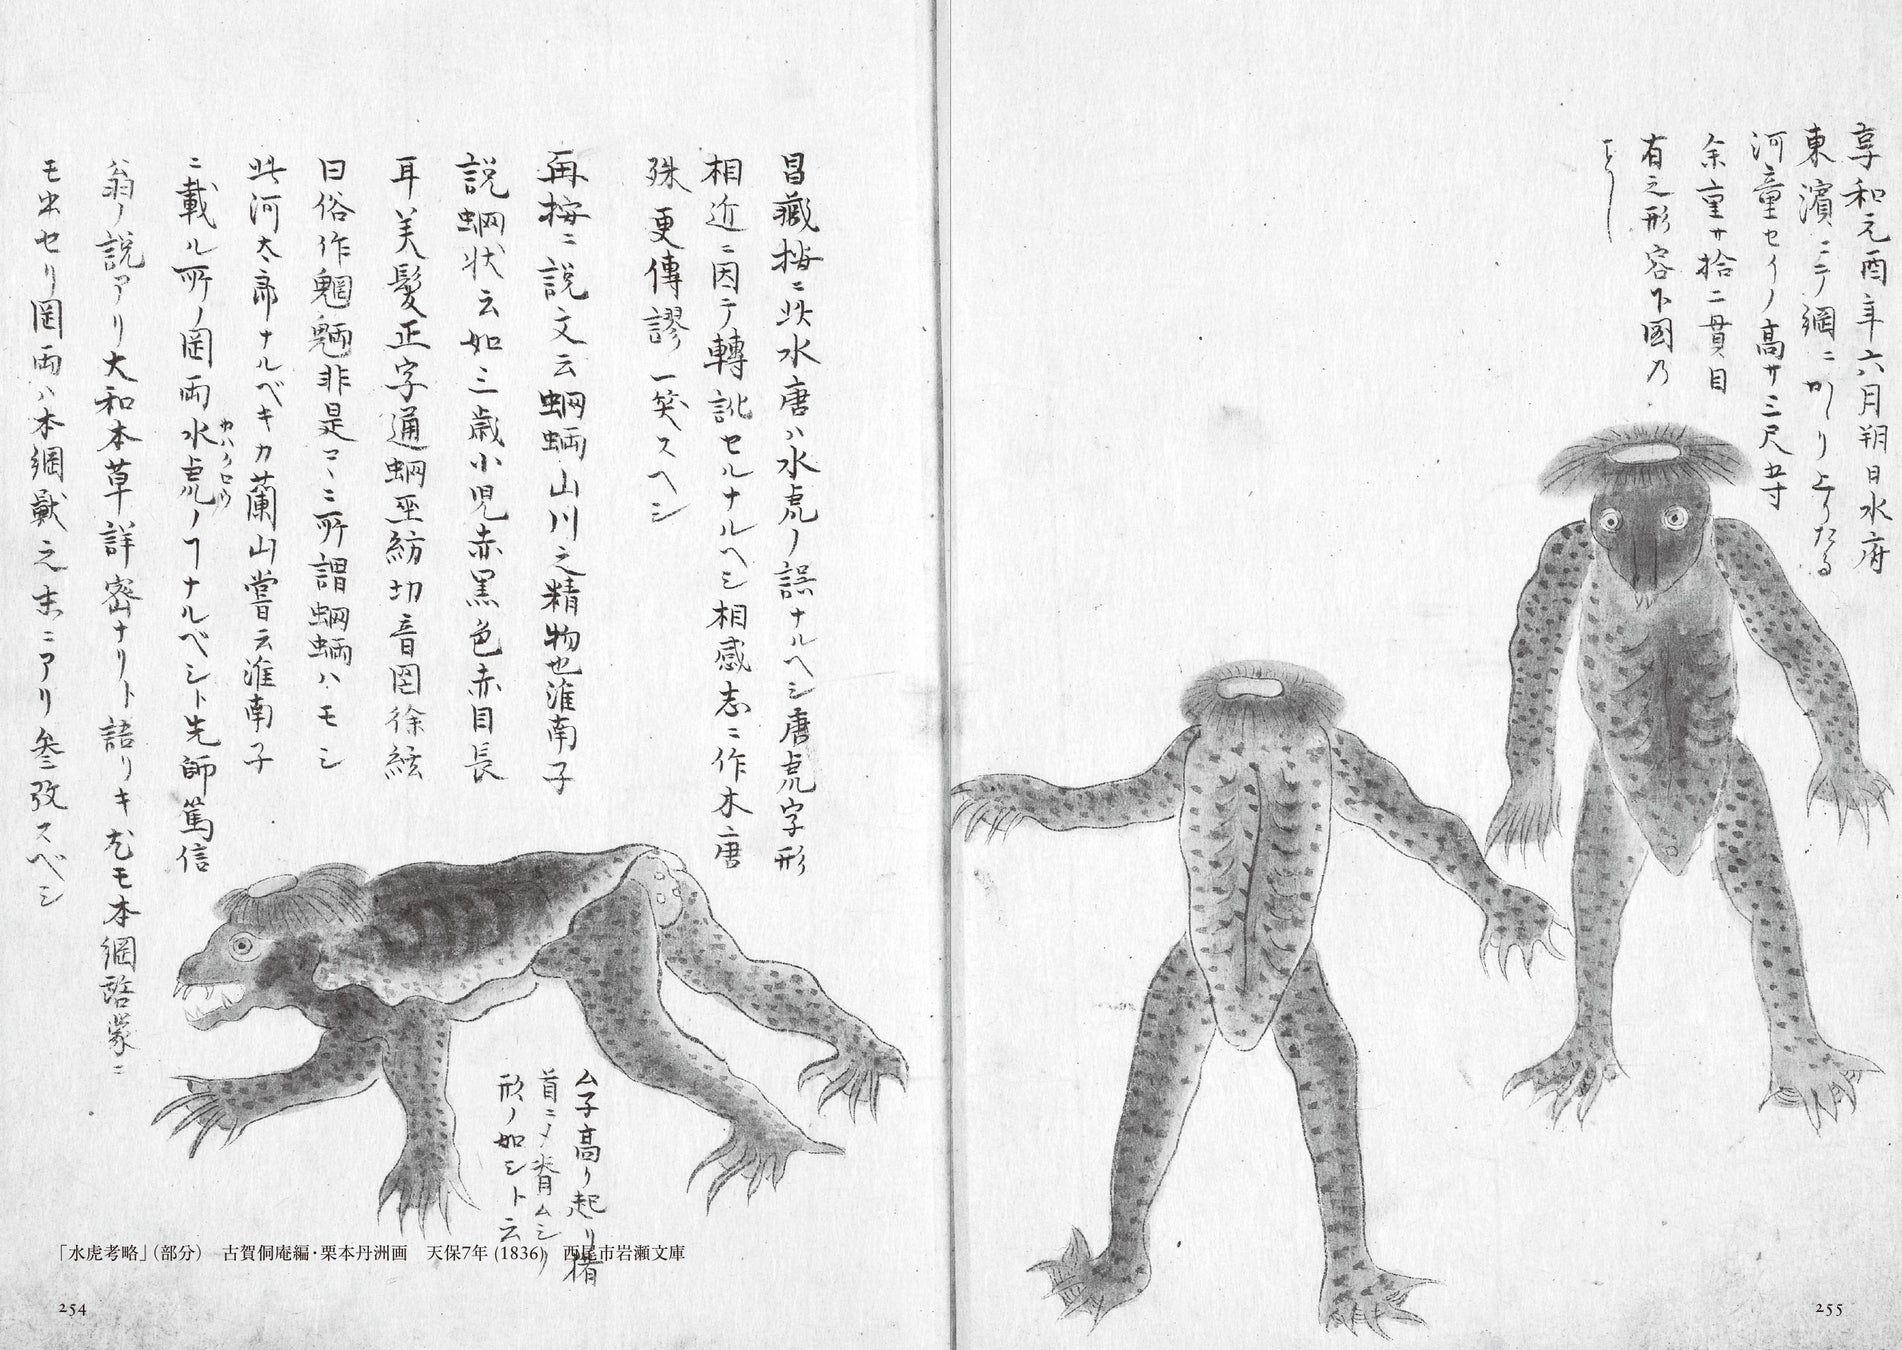 享和元酉年六月朔日水府
東濱ニテ網ニかゝり上りたる
河童セイノ高サ三尺五寸
余重サ拾二貫目
有之形容下圖乃
ことし
昌藏按ニ此水唐ハ水虎ノ誤ナルヘシ唐虎字形
相近ニ因テ轉訛セルナルヘシ相感志ニ作木唐
殊更傳謬一笑スヘシ
再按ニ説文云蝄蜽山川之精物也淮南子
説蝄状云如三歳小児赤黒色赤目長
耳美髪正字通蝄巫紡切音罔徐鉉
曰俗作魍魎非是コヽニ所謂蝄蜽ハモシ
此河太郎ナルベキカ蘭山嘗云淮南子
ニ載ル所ノ罔兩水虎ノコナルベシト先師篤信
カハタロウ
翁ノ説アリ大和本草詳密ナリト語リキ尤モ本綱啓蒙ニ
モ出セリ罔両ハ本綱獸之末ニアリ参攷スベシ
ム子高り起り猪
首ニメ脊ムシノ
形ノ如シト云
「水虎考略」（部分）　古賀侗庵編・栗本丹洲画　天保7年 (1836)　西尾市岩瀬文庫
254
255